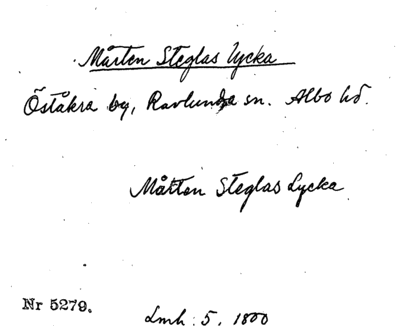 Mårten Steglas lycka
Öståkra by, Ravlunda sn. Albo hd.
Mårten Steglas Lycka
Nr 5279.
Lmh: 5, 1800